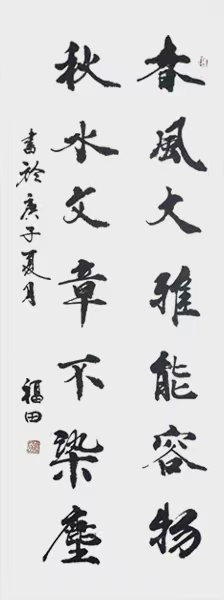 春风大雅能容物
秋水文章不染尘
書於庚子夏月
福田